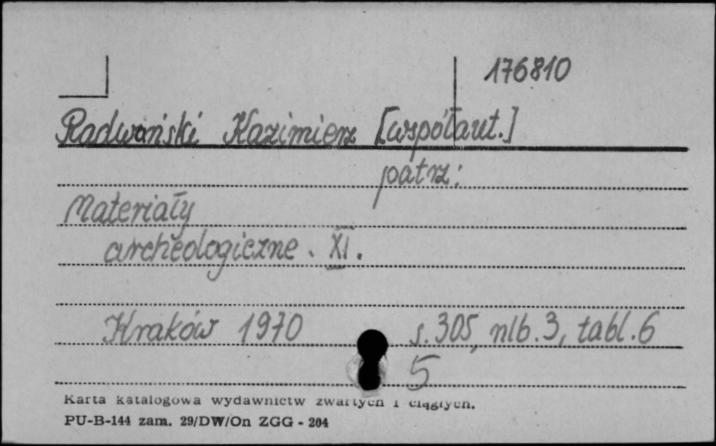 176810
Radwański Kazimierz [współaut.]
patrz:
Materiały
archeologiczne. XI.
Kraków 1970 s. 305, nlb. 3, tabl. 6
5
Karta katalogowa wydawnictw zwartych i ciągłych.
PU-B-144 zam. 29/DW/On ZGG - 204